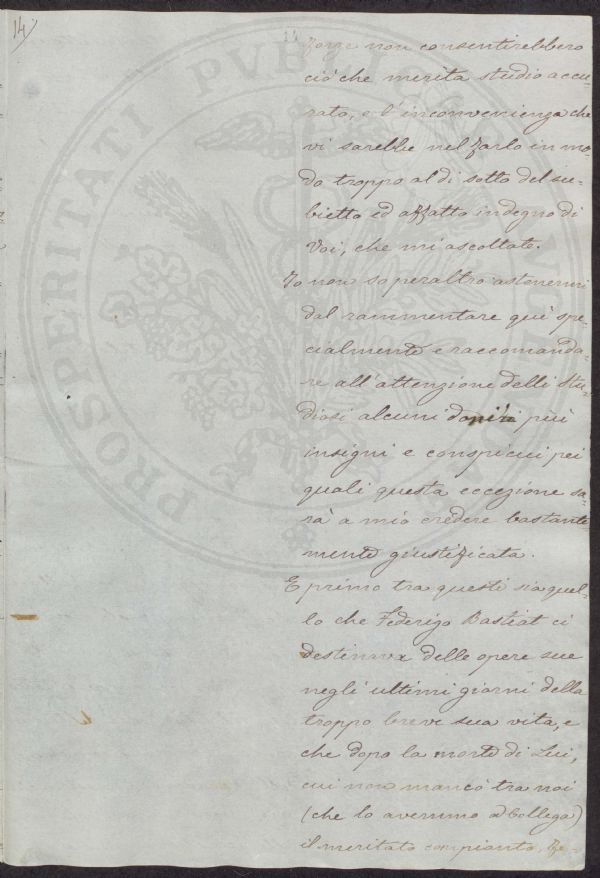 14
14
forze non consentirebbero
ciò che merita studio accu-
rato, e l'inconvenienza che
vi sarebbe nel farlo in mo-
do troppo al di sotto del su-
bietto ed affatto indegno di
Voi, che mi ascoltate.
Io non so peraltro astenermi
dal rammentare qui spe-
cialmente e raccomanda-
re all'attenzione delli Stu-
diosi alcuni doni i più
insigni e conspicui pei
quali questa eccezione sa-
rà a mio credere bastante
mente giustificata.
E primo tra questi sia quel-
lo che Federigo Bastiat ci
destinava delle opere sue
negli ultimi giorni della
troppo breve sua vita, e
che dopo la morte di Lui,
cui non mancò tra noi
(che lo avemmo a Collega)
il meritato compianto, fe-
PROSPERITATI PVBLICAE AVGENDAE